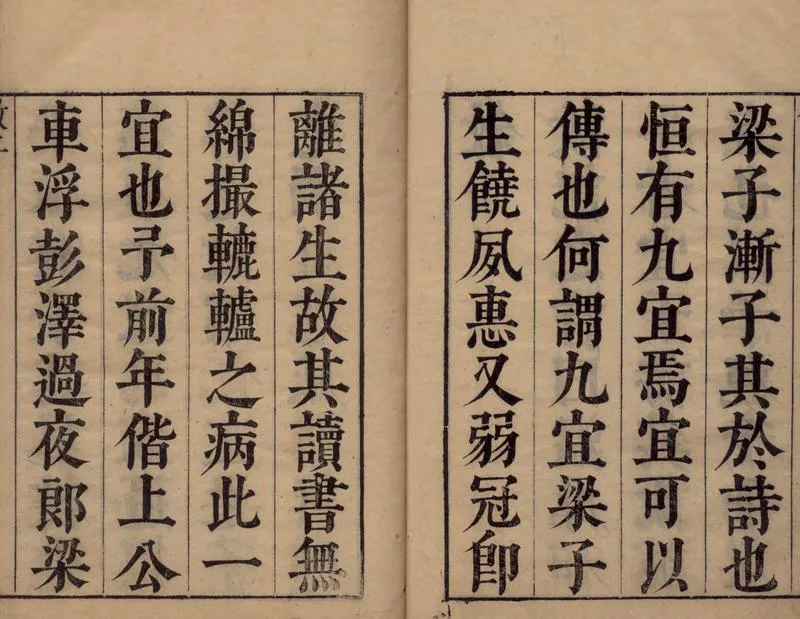 梁子漸子其於詩也
恒有九宜焉宜可以
傳也何謂九宜梁子
生饒夙惠又弱冠卽
離諸生故其讀書無
綿撮轆轤之病此一
宜也予前年偕上公
車浮彭澤過夜郎梁